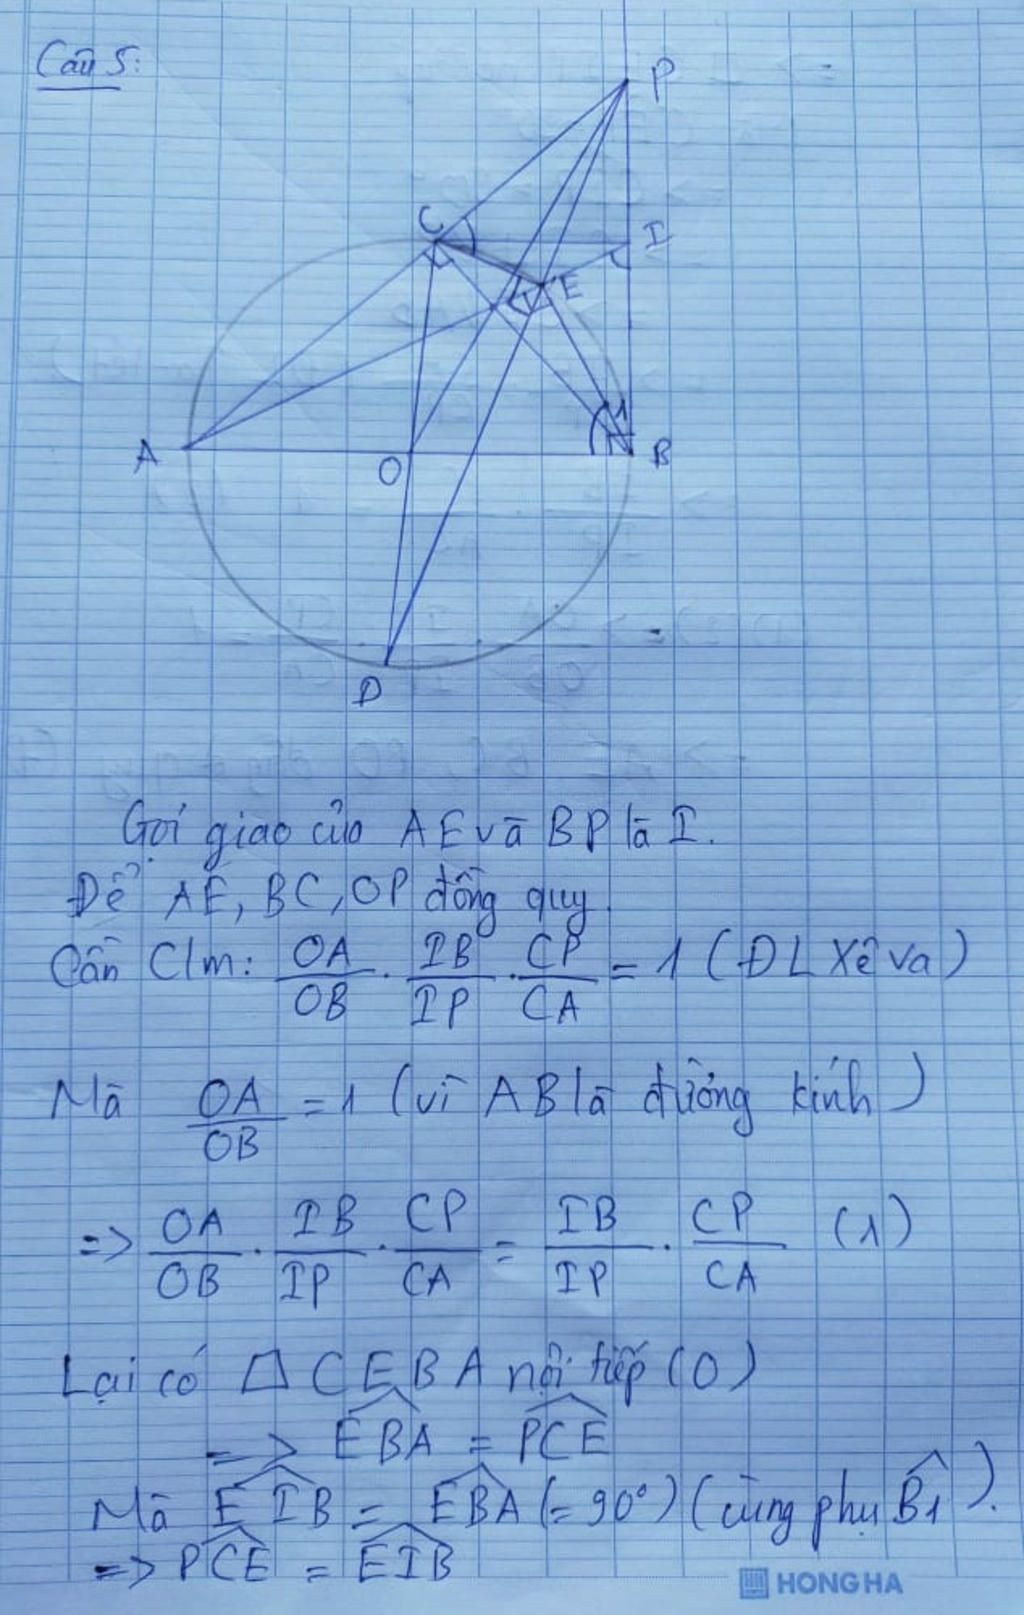 Câu 5:
P
C
I
E
1
A
O
B
D
Gọi giao của AE và BP là I.
Để AE, BC, OP đồng quy.
Cần C/m: OA/OB . IB/IP . CP/CA = 1 (ĐL Xêva)
Mà OA/OB = 1 (vì AB là đường kính)
=> OA/OB . IB/IP . CP/CA = IB/IP . CP/CA (1)
Lại có CEBA nội tiếp (O)
=> EBA = PCE
Mà EIB = EBA (= 90°) (cùng phụ B1).
=> PCE = EIB
HONG HA